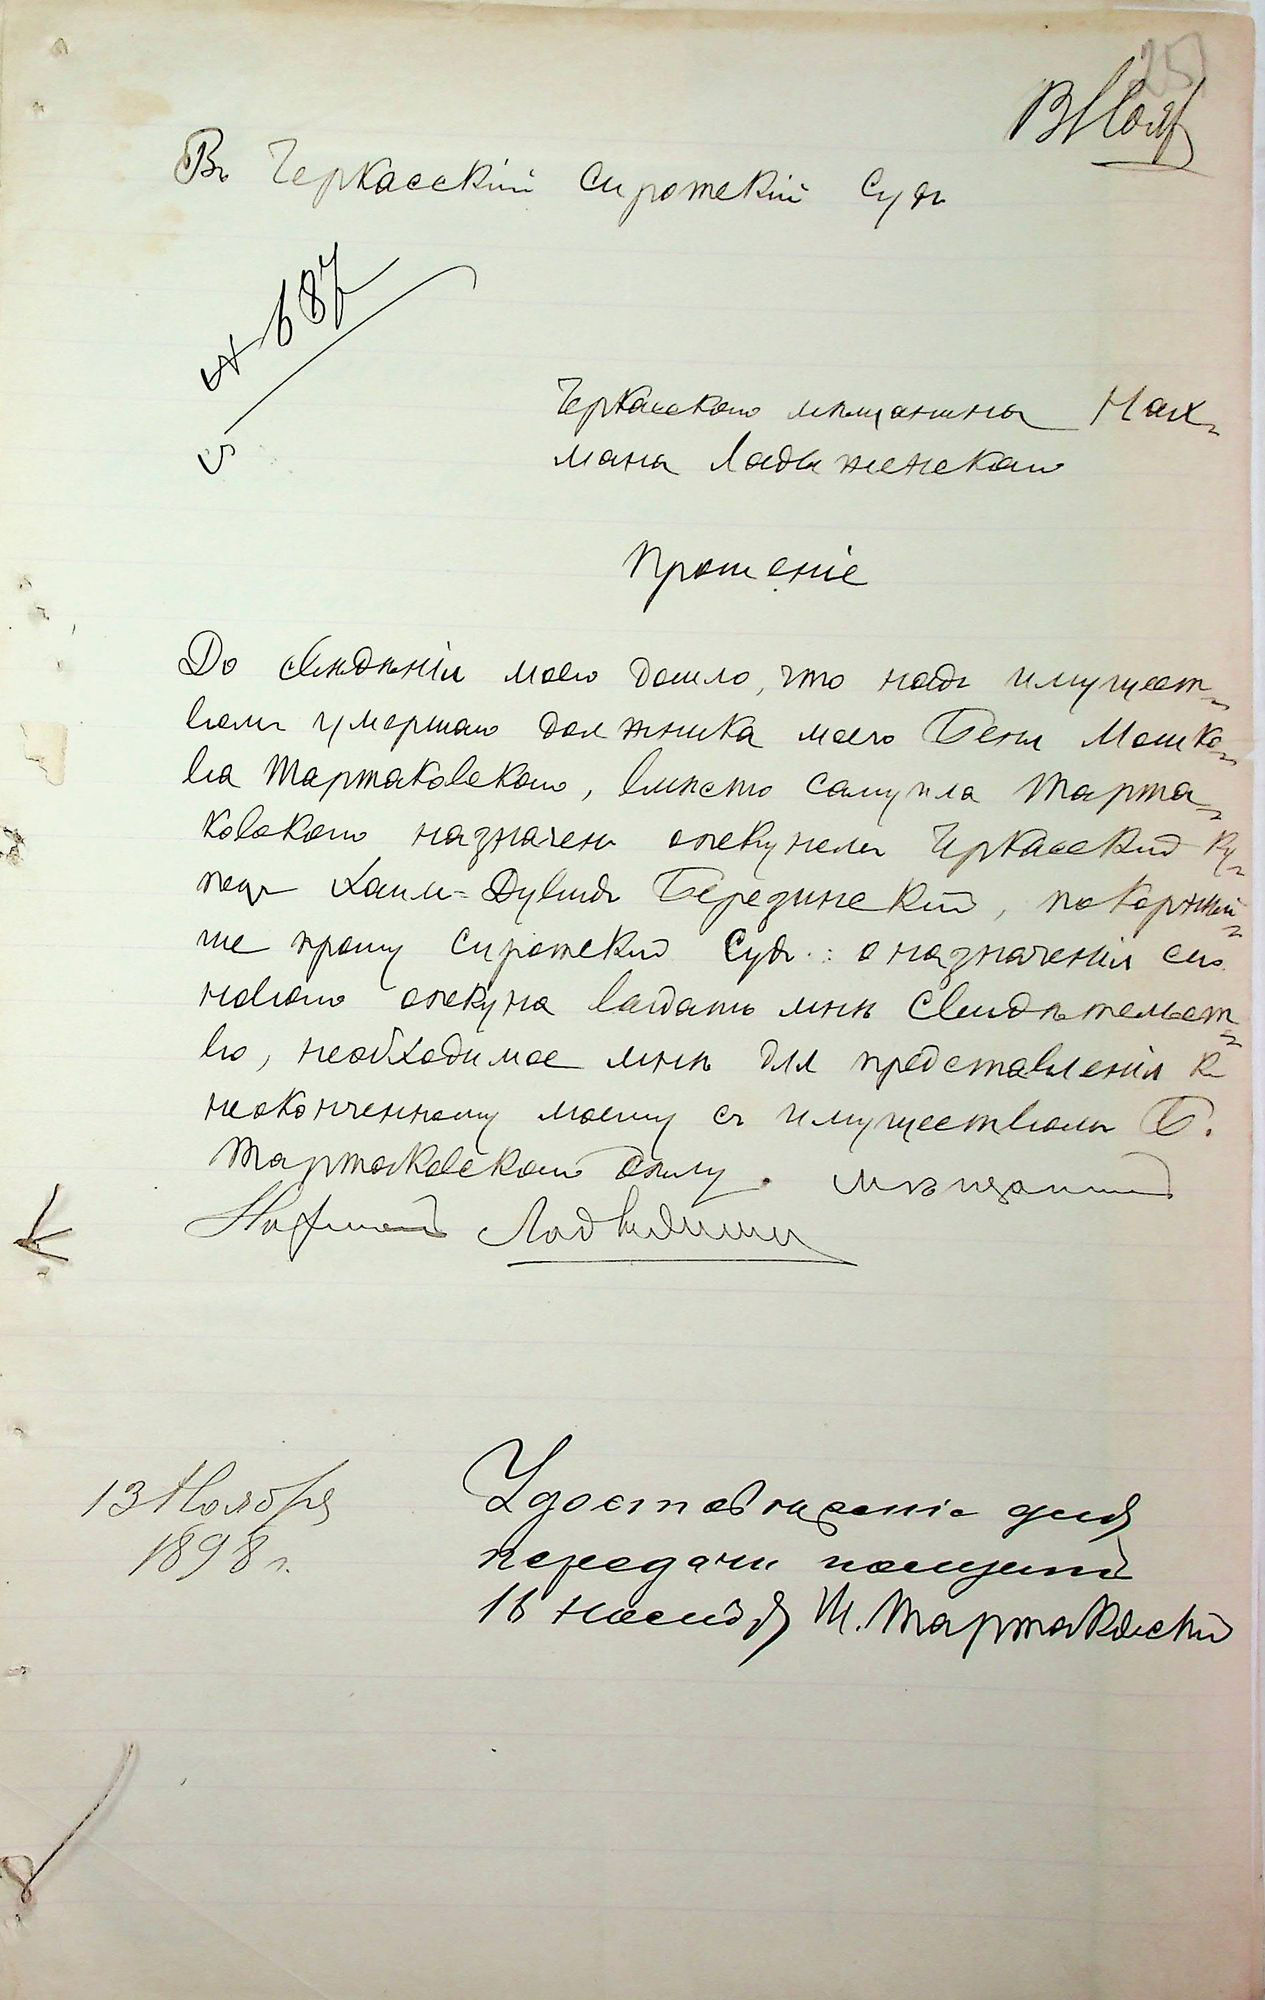 25
Въ Черкасскій Сиротскій Судъ
№ 687
Черкасскаго мѣщанина Нах-
мана Ладыженскаго
Прошеніе
До свѣдѣнія моего дошло, что надъ имущест-
вомъ умершаго должника моего Бени Мошко-
ва Тартаковскаго, вмѣсто Самуила Тарта-
ковскаго назначенъ опекуномъ Черкасскій ку-
пецъ Хаим=Дувидъ Березинскій, покорнѣй-
ше прошу Сиротскій Судъ о назначеніи сего
новаго опекуна выдать мнѣ Свидѣтельст-
во, необходимое мнѣ для представленія къ
неоконченному моему съ имуществомъ Б.
Тартаковскаго дѣлу. Мѣщанинъ
Нахман Ладыженский
13 Ноября
1898 г.
Удостовѣреніе для
передачи получилъ
16 Ноября Ш. Тартаковскій